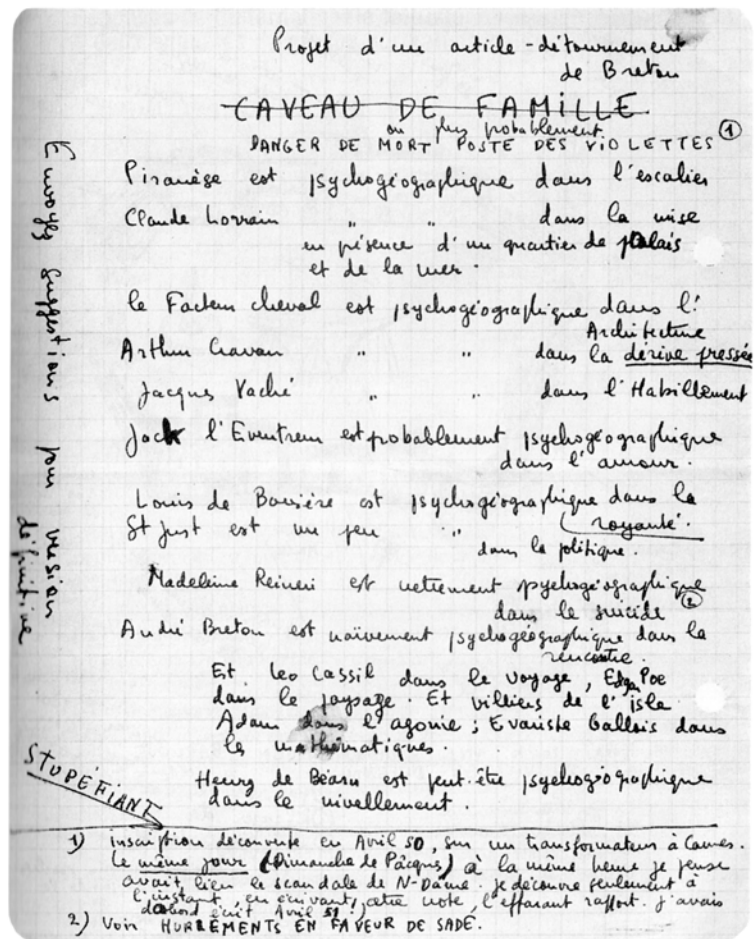 Projet d'un article-détournement
de Breton
CAVEAU DE FAMILLE
ou plus probablement
DANGER DE MORT POSTE DES VIOLETTES ①
Piranèse est psychogéographique dans l'escalier
Claude Lorrain " " dans la mise
en présence d'un quartier de palais
et de la mer.
le Facteur cheval est psychogéographique dans l'
Architecture
Arthur Cravan " " dans la dérive pressée
Jacques Vaché " " dans l'Habillement
Jack l'Eventreur est probablement psychogéographique
dans l'amour.
Louis de Bavière est psychogéographique dans la
royauté.
St Just est un peu " dans la politique.
Madeleine Reineri est nettement psychogéographique
dans le suicide ②
André Breton est naïvement psychogéographique dans la
rencontre.
Et Leo Cassil dans le voyage, Edgar Poe
dans le paysage. Et villiers de l'isle
Adam dans l'agonie ; Evariste Gallois dans
les mathématiques.
Henry de Béarn est peut-être psychogéographique
dans le nivellement.
Envoyez suggestions pour version
définitive
STUPÉFIANT
1) inscription découverte en Avril 50, sur un transformateur à Cannes.
Le même jour (Dimanche de Pâques) à la même heure je pense
avait lieu le scandale de N-Dame. je découvre seulement à
l'instant, en écrivant cette note, l'effarant rapport. j'avais
d'abord écrit Avril 51 !)
2) Voir HURLEMENTS EN FAVEUR DE SADE.